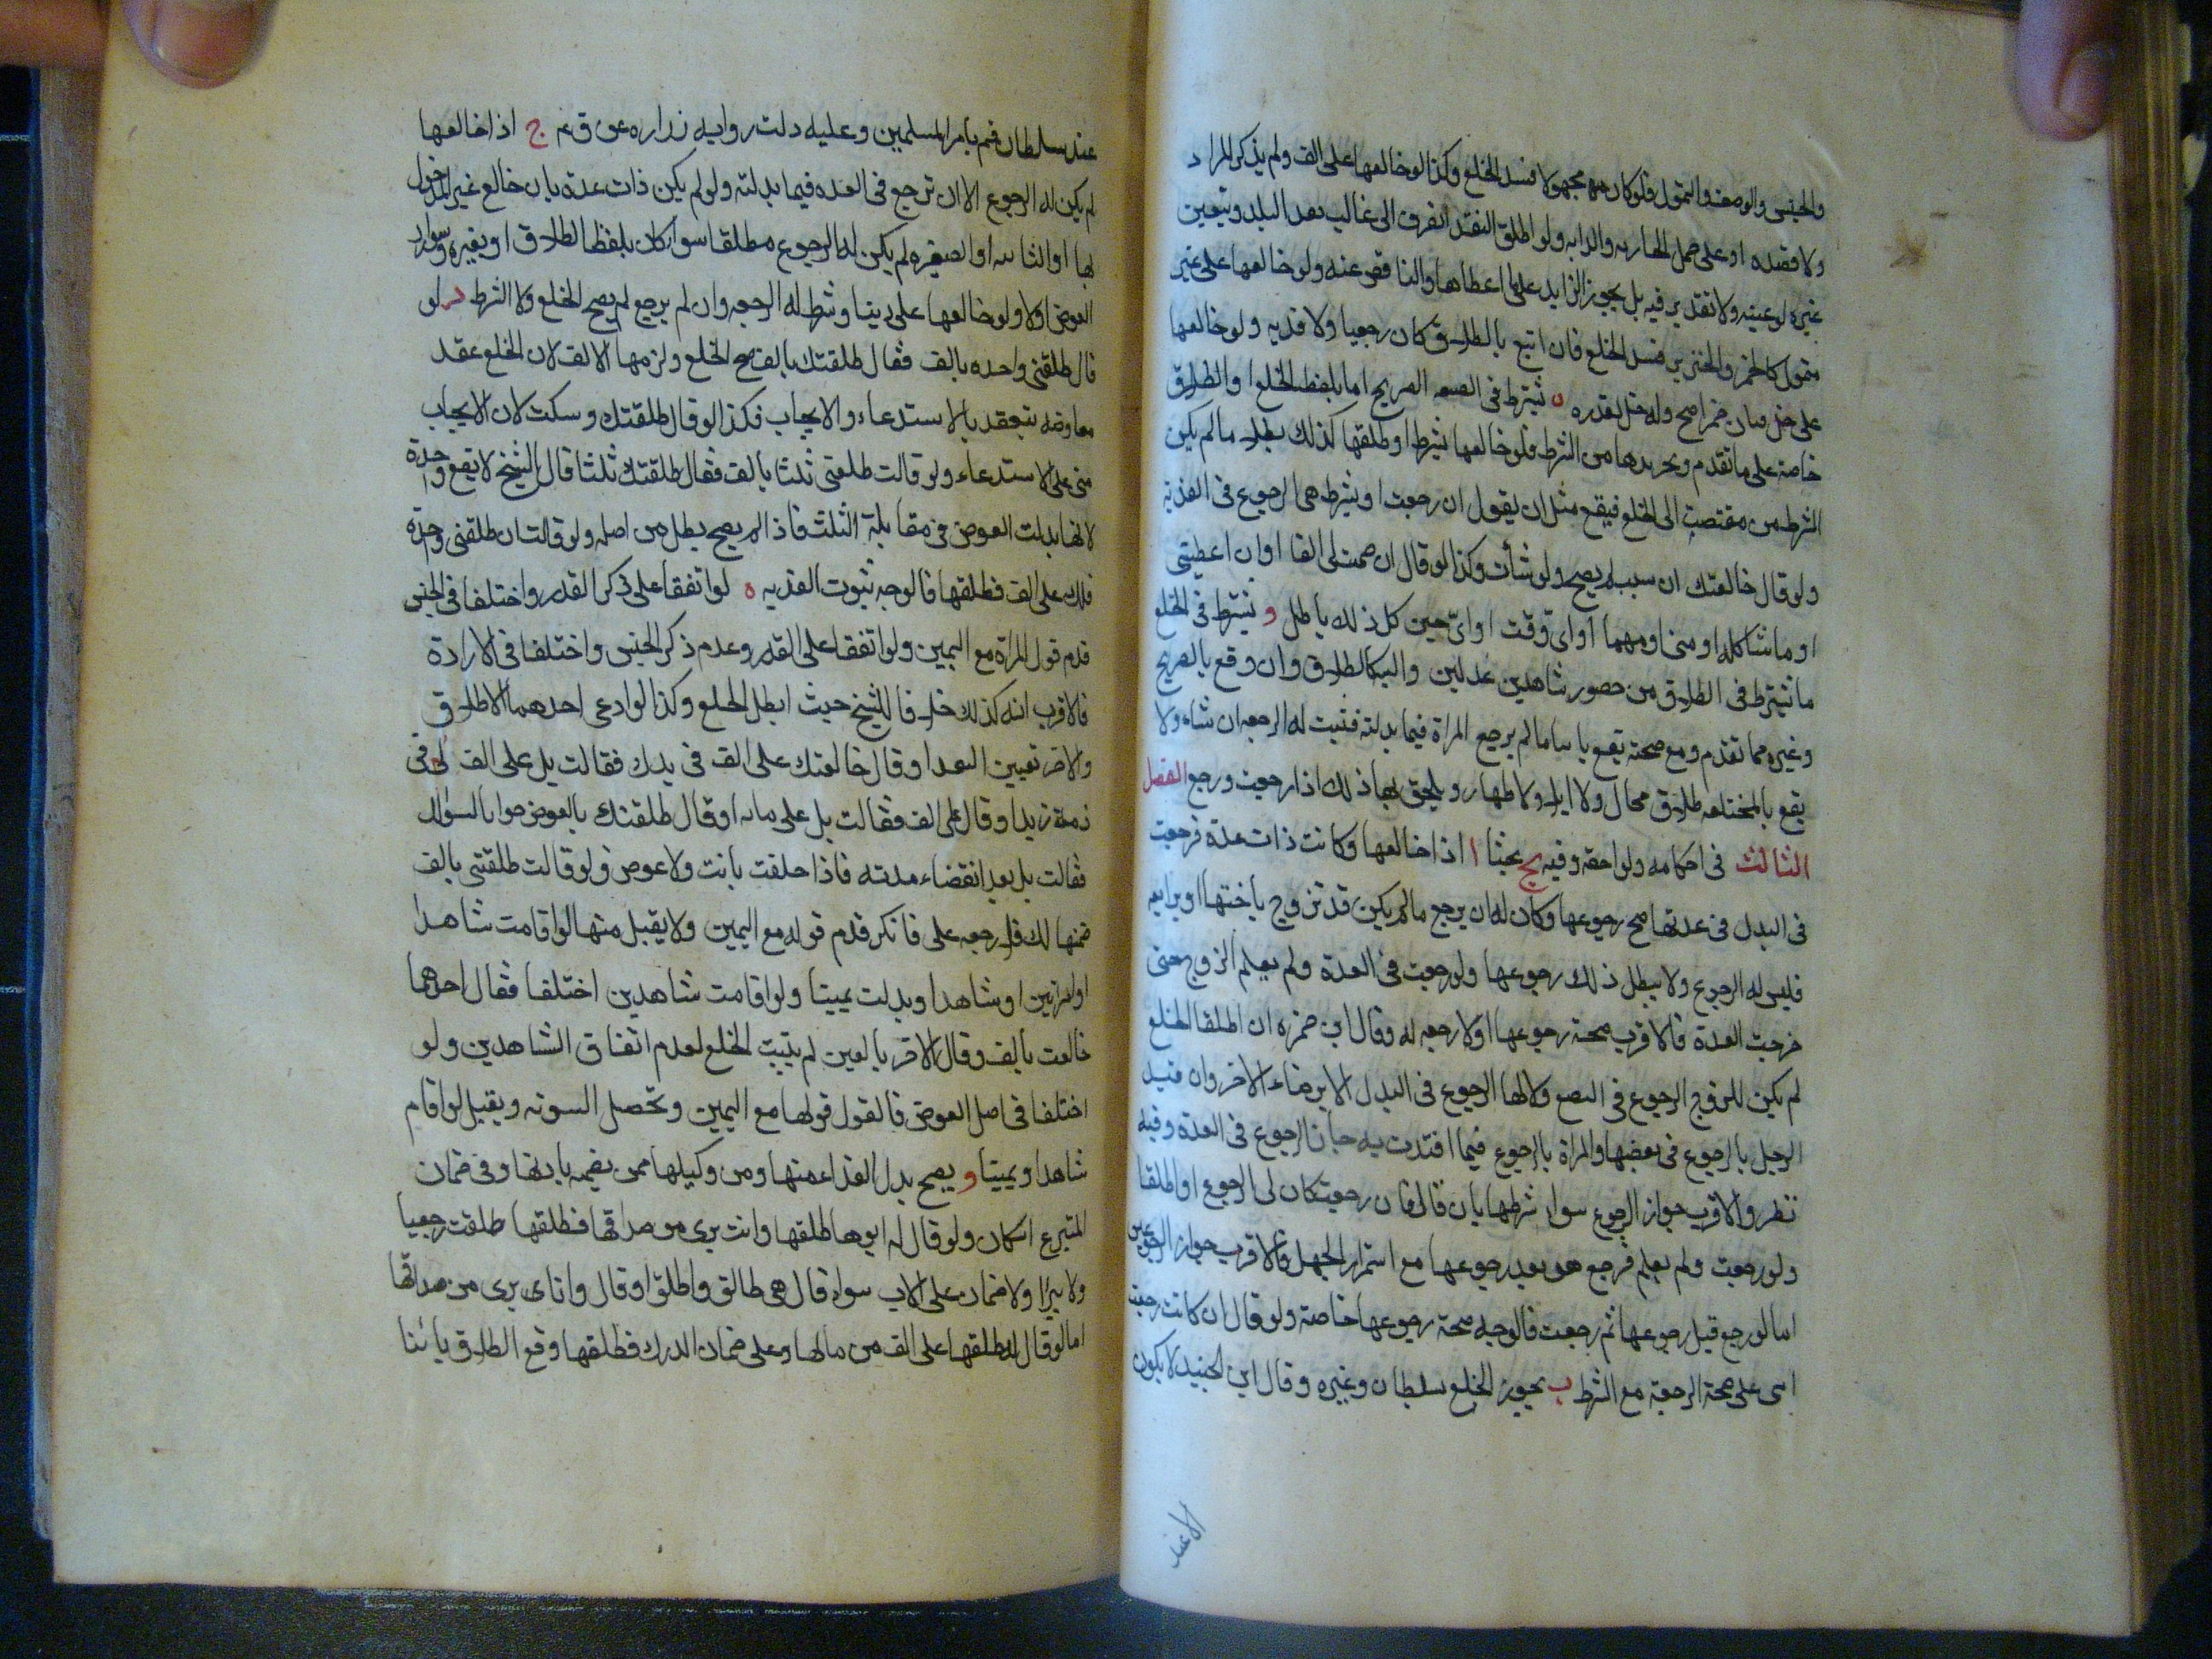 والجنس والوصف والتمول فلو كان مجهولا فسد الخلع وكذا لو خالعها على الف ولم يذكر المراد
ولا قصده او على حمل الجاريه والدابه ولو اطلق النقد انصرف الى غالب نقد البلد ويتعين
غيره لو عينه ولا تقدير فيه بل يجوز الزايد على ما اعطاها والناقص عنه ولو خالعها على غير
متمول كالخمر والخنزير فسد الخلع فان اتبع بالطلاق كان رجعيا ولا فديه ولو خالعها
على خل فبان خمرا صح وله خل بقدره ٥ يشترط في الصيغه الصريح اما بلفظ الخلع او الطلاق
خاصة على ما تقدم وتجريدها من الشرط فلو خالعها بشرط او طلقها كذلك بطل ما لم يكن
الشرط من مقتضيات الخلع فيقع مثل ان يقول ان رجعت او يشترط هي الرجوع في الفدية
ولو قال خالعتك ان شئت لم يصح ولو شأت وكذا لو قال ان ضمنت لى الفا او ان اعطيتني
او ما شاكله او متى او مهما او اى وقت او اى حين كل ذلك باطل و يشترط في الخلع
ما يشترط في الطلاق من حضور شاهدين عدلين والبت كالطلاق وان وقع بالصريح
وغيره مما تقدم ومع صحة تقع باينا ما لم يرجع المراة فيما بذلته فثبت له الرجعه ان شاء ولا
يقع بالمختلعه طلاق محال ولا ايلاء ولا ظهار ويلحق بها ذلك اذا رجعت ورجع الفصل
الثالث في احكامه ولواحقه وفيه يج بحثا ا اذا خالعها وكانت ذات عدة فرجعت
في البدل في عدتها صح رجوعها وكان له ان يرجع ما لم يكن قد تزوج باختها او برابعه
فليس له الرجوع ولا يبطل ذلك رجوعها ولو رجعت في العدة ولم يعلم الزوج حتى
خرجت العدة فالاقرب صحة رجوعها اولا رجعه له وقال ابن حمزه ان اطلقا الخلع
لم يكن للزوج الرجوع في البضع ولا لها الرجوع في البدل الا برضاء الاخر وان قيد
الرجل بالرجوع في بعضها والمراة بالرجوع فيما افتدت به جاز الرجوع في العدة وفيه
نظر والاقرب جواز الرجوع سواء شرطها بان قال فان رجعت كان لى الرجوع او اطلقا
ولو رجعت ولم يعلم فرجع هو بعد رجوعها مع استمرار الجهل فالاقرب جواز الرجوعين
اما لو رجع قبل رجوعها ثم رجعت فالوجه صحة رجوعها خاصة ولو قال ان كانت رجعت
ابتنى على صحة الرجعة مع الشرط ب يجوز الخلع بسلطان وغيره وقال ابن الجنيد لا يكون
الا عند
عند سلطان قيم بامر المسلمين وعليه دلت روايه زراره عن ق عم ج اذا خالعها
لم يكن له الرجوع الا ان ترجع في العده فيما بذلته ولو لم يكن ذات عدة بان خالع غير المدخول
بها او اليائسه او الصغيره لم يكن له الرجوع مطلقا سواء كان بلفظ الطلاق او بغيره وسواء رد
العوض او لا ولو خالعها على دينا وشرط له الرجعه وان لم يرجع لم يصح الخلع ولا الشرط د لو
قال طلقنى واحده بالف فقال طلقتك بالف صح الخلع ولزمها الالف لان الخلع عقد
معاوضه ينعقد بالاستدعاء والايجاب فكذا لو قال طلقتك وسكت لان الايجاب
مبنى على الاستدعاء ولو قالت طلقني ثلثا بالف فقال طلقتك ثلثا قال الشيخ لا يقع واحدة
لانها بذلت العوض في مقابلة الثلث فاذا لم يصح بطل من اصله ولو قالت ان طلقتنى واحدة
فلك على الف فطلقها فالوجه ثبوت الفديه ه لو اتفقا على ذكر القدر واختلفا في الجنس
قدم قول المراة مع اليمين ولو اتفقا على القدر وعدم ذكر الجنس واختلفا في الارادة
فالاقرب انه كذلك خلافا للشيخ حيث ابطل الخلع وكذا لو ادعى احدهما الاطلاق
والاخر تعيين النقد او قال خالعتك على الف في يدك فقالت بل على الف لى في
ذمة زيد او قال على الف فقالت بل على مايه او قال طلقتك بالعوض جوابا لسؤالك
فقالت بل بعد انقضاء مدته فاذا حلفت بانت ولا عوض ولو قالت طلقتني بالف
ضمنها لك فلا رجعه على فانكر قدم قوله مع اليمين ولا يقبل منها لو اقامت شاهدا
وامراتين او شاهدا وبذلت يمينا ولو اقامت شاهدين اختلفا فقال احدهما
خالعت بالف وقال الاخر بالفين لم يثبت الخلع لعدم اتفاق الشاهدين ولو
اختلفا في اصل العوض فالقول قولها مع اليمين وتحصل البينونه ويقبل لو اقام
شاهدا ويمينا و يصح بذل الفداء منها ومن وكيلها ممن يضمنه باذنها وفى ضمان
المتبرع اشكال ولو قال له ابوها طلقها وانت برى من صداقها فطلقها طلقت رجعيا
ولا يبرا ولا ضمان على الاب سواء قال هى طالق واطلق او قال وانا برى من صداقها
اما لو قال له طلقها على الف من مالها وعلى ضمان الدرك فطلقها وقع الطلاق بائنا